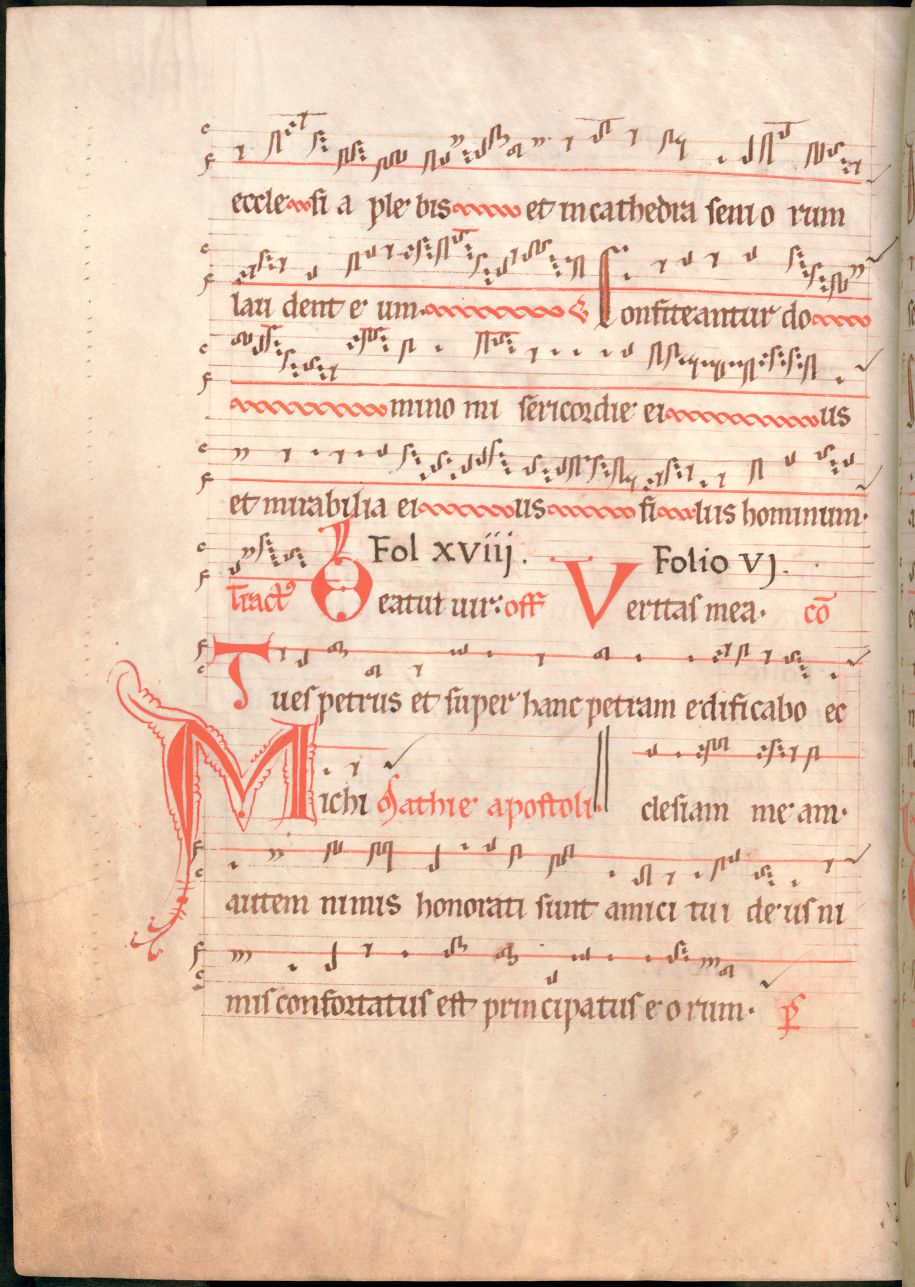 eccle si a ple bis et in cathedra seni o rum
lau dent e um. Confiteantur do
mino mi sericordie ei us
et mirabilia ei us fi lius hominum.
Fol xviij. Folio vj.
Tract⁹ Beatus uir: off Veritas mea. cō
Tu es petrus et super hanc petram edificabo ec
Michi Mathie apostoli clesiam me am.
autem nimis honorati sunt amici tu i de us ni
mis confortatus est principatus e o rum. ps